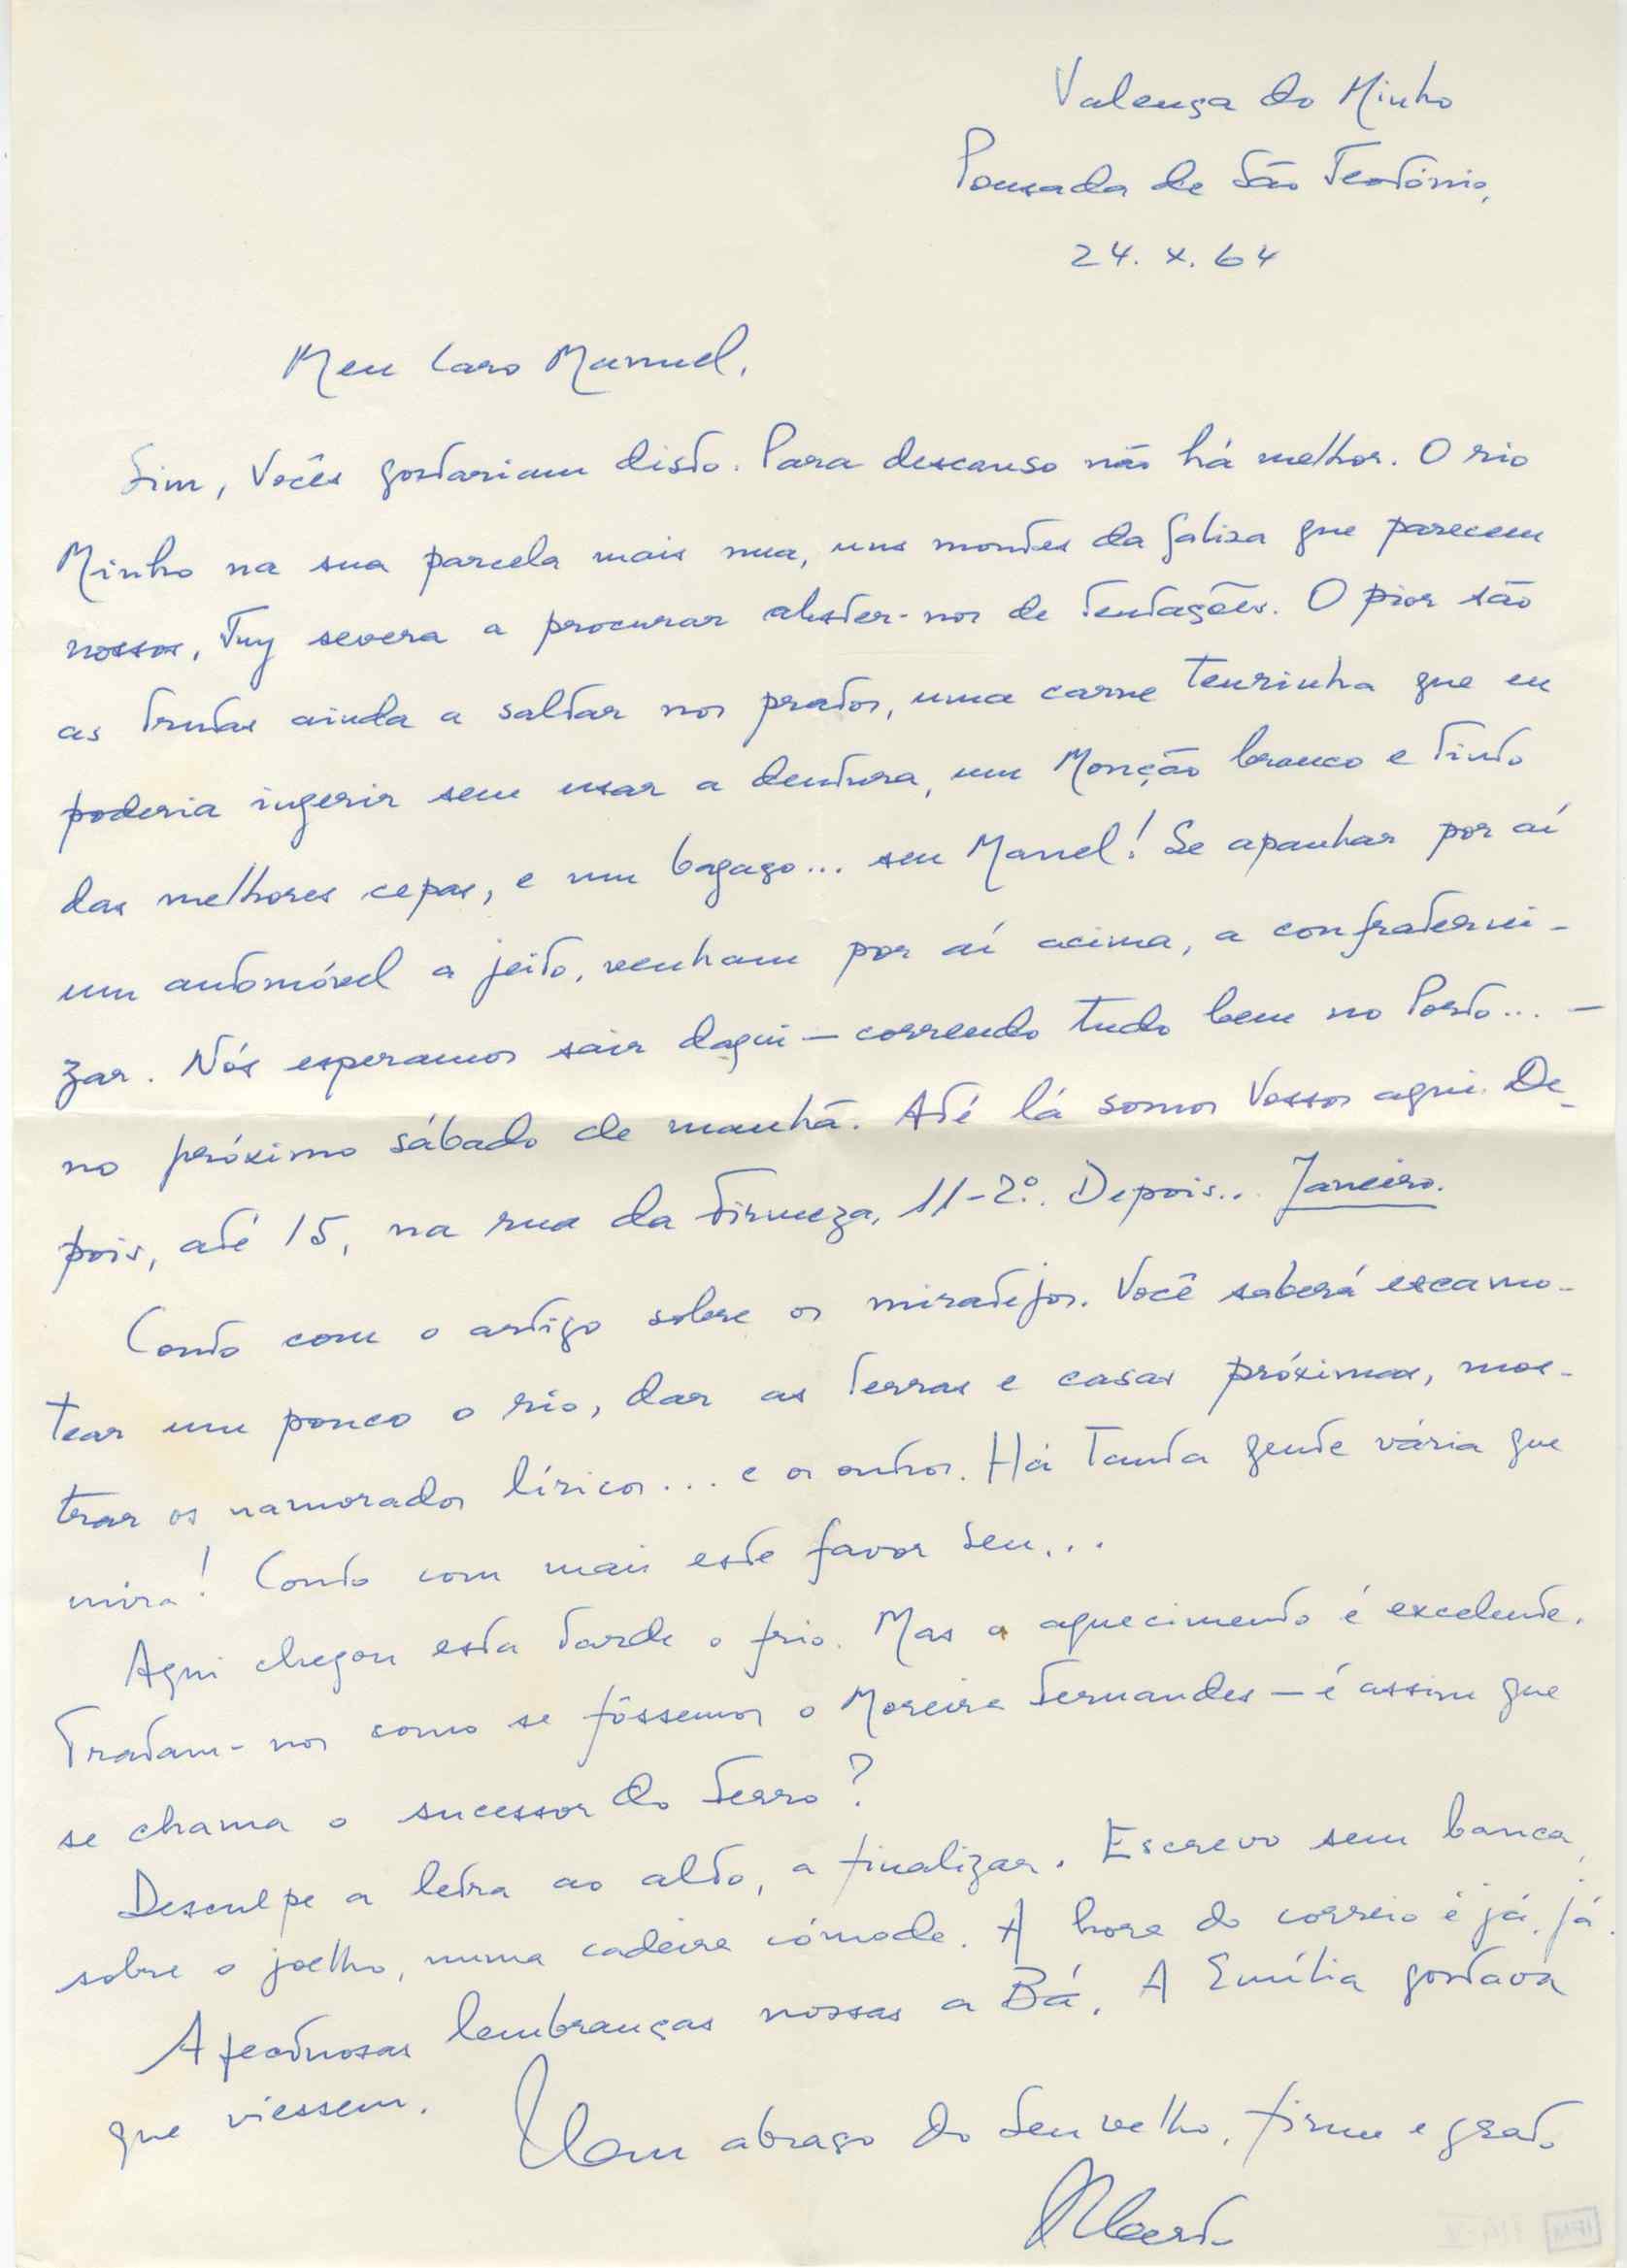 Valença do Minho
Pousada de São Teotónio,
24. X. 64
Meu Caro Manuel,
Sim, Vocês gostariam disto. Para descanso não há melhor. O rio
Minho na sua parcela mais nua, uns montes da Galiza que parecem
nossos, Tuy severa a procurar abster-nos de tentações. O pior são
as trutas ainda a saltar nos pratos, uma carne tenrinha que eu
poderia ingerir sem usar a dentura, um Monção branco e tinto
das melhores cepas, e um bagaço... seu Manel! Se apanhar por aí
um automóvel a jeito, venham por aí acima, a confraterni-
zar. Nós esperamos sair daqui – correndo tudo bem no Porto... –
no próximo sábado de manhã. Até lá somos Vossos aqui. De-
pois, até 15, na rua da Firmeza, 11-2º. Depois... Janeiro.
Conto com o artigo sobre os miratejos. Você saberá escamo-
tear um pouco o rio, dar as terras e casas próximas, mos-
trar os namorados líricos... e os outros. Há tanta gente vária que
mira! Conto com mais este favor Seu...
Aqui chegou esta tarde o frio. Mas o aquecimento é excelente.
Tratam-nos como se fôssemos o Moreira Fernandes – é assim que
se chama o sucessor do Ferro?
Desculpe a letra ao alto, a finalizar. Escrevo sem banca,
sobre o joelho, numa cadeira cómoda. A hora do correio é já, já.
Afectuosas lembranças nossas a Bá. A Emília gostava
que viessem.
Um abraço do Seu velho, firme e grato
Alberto